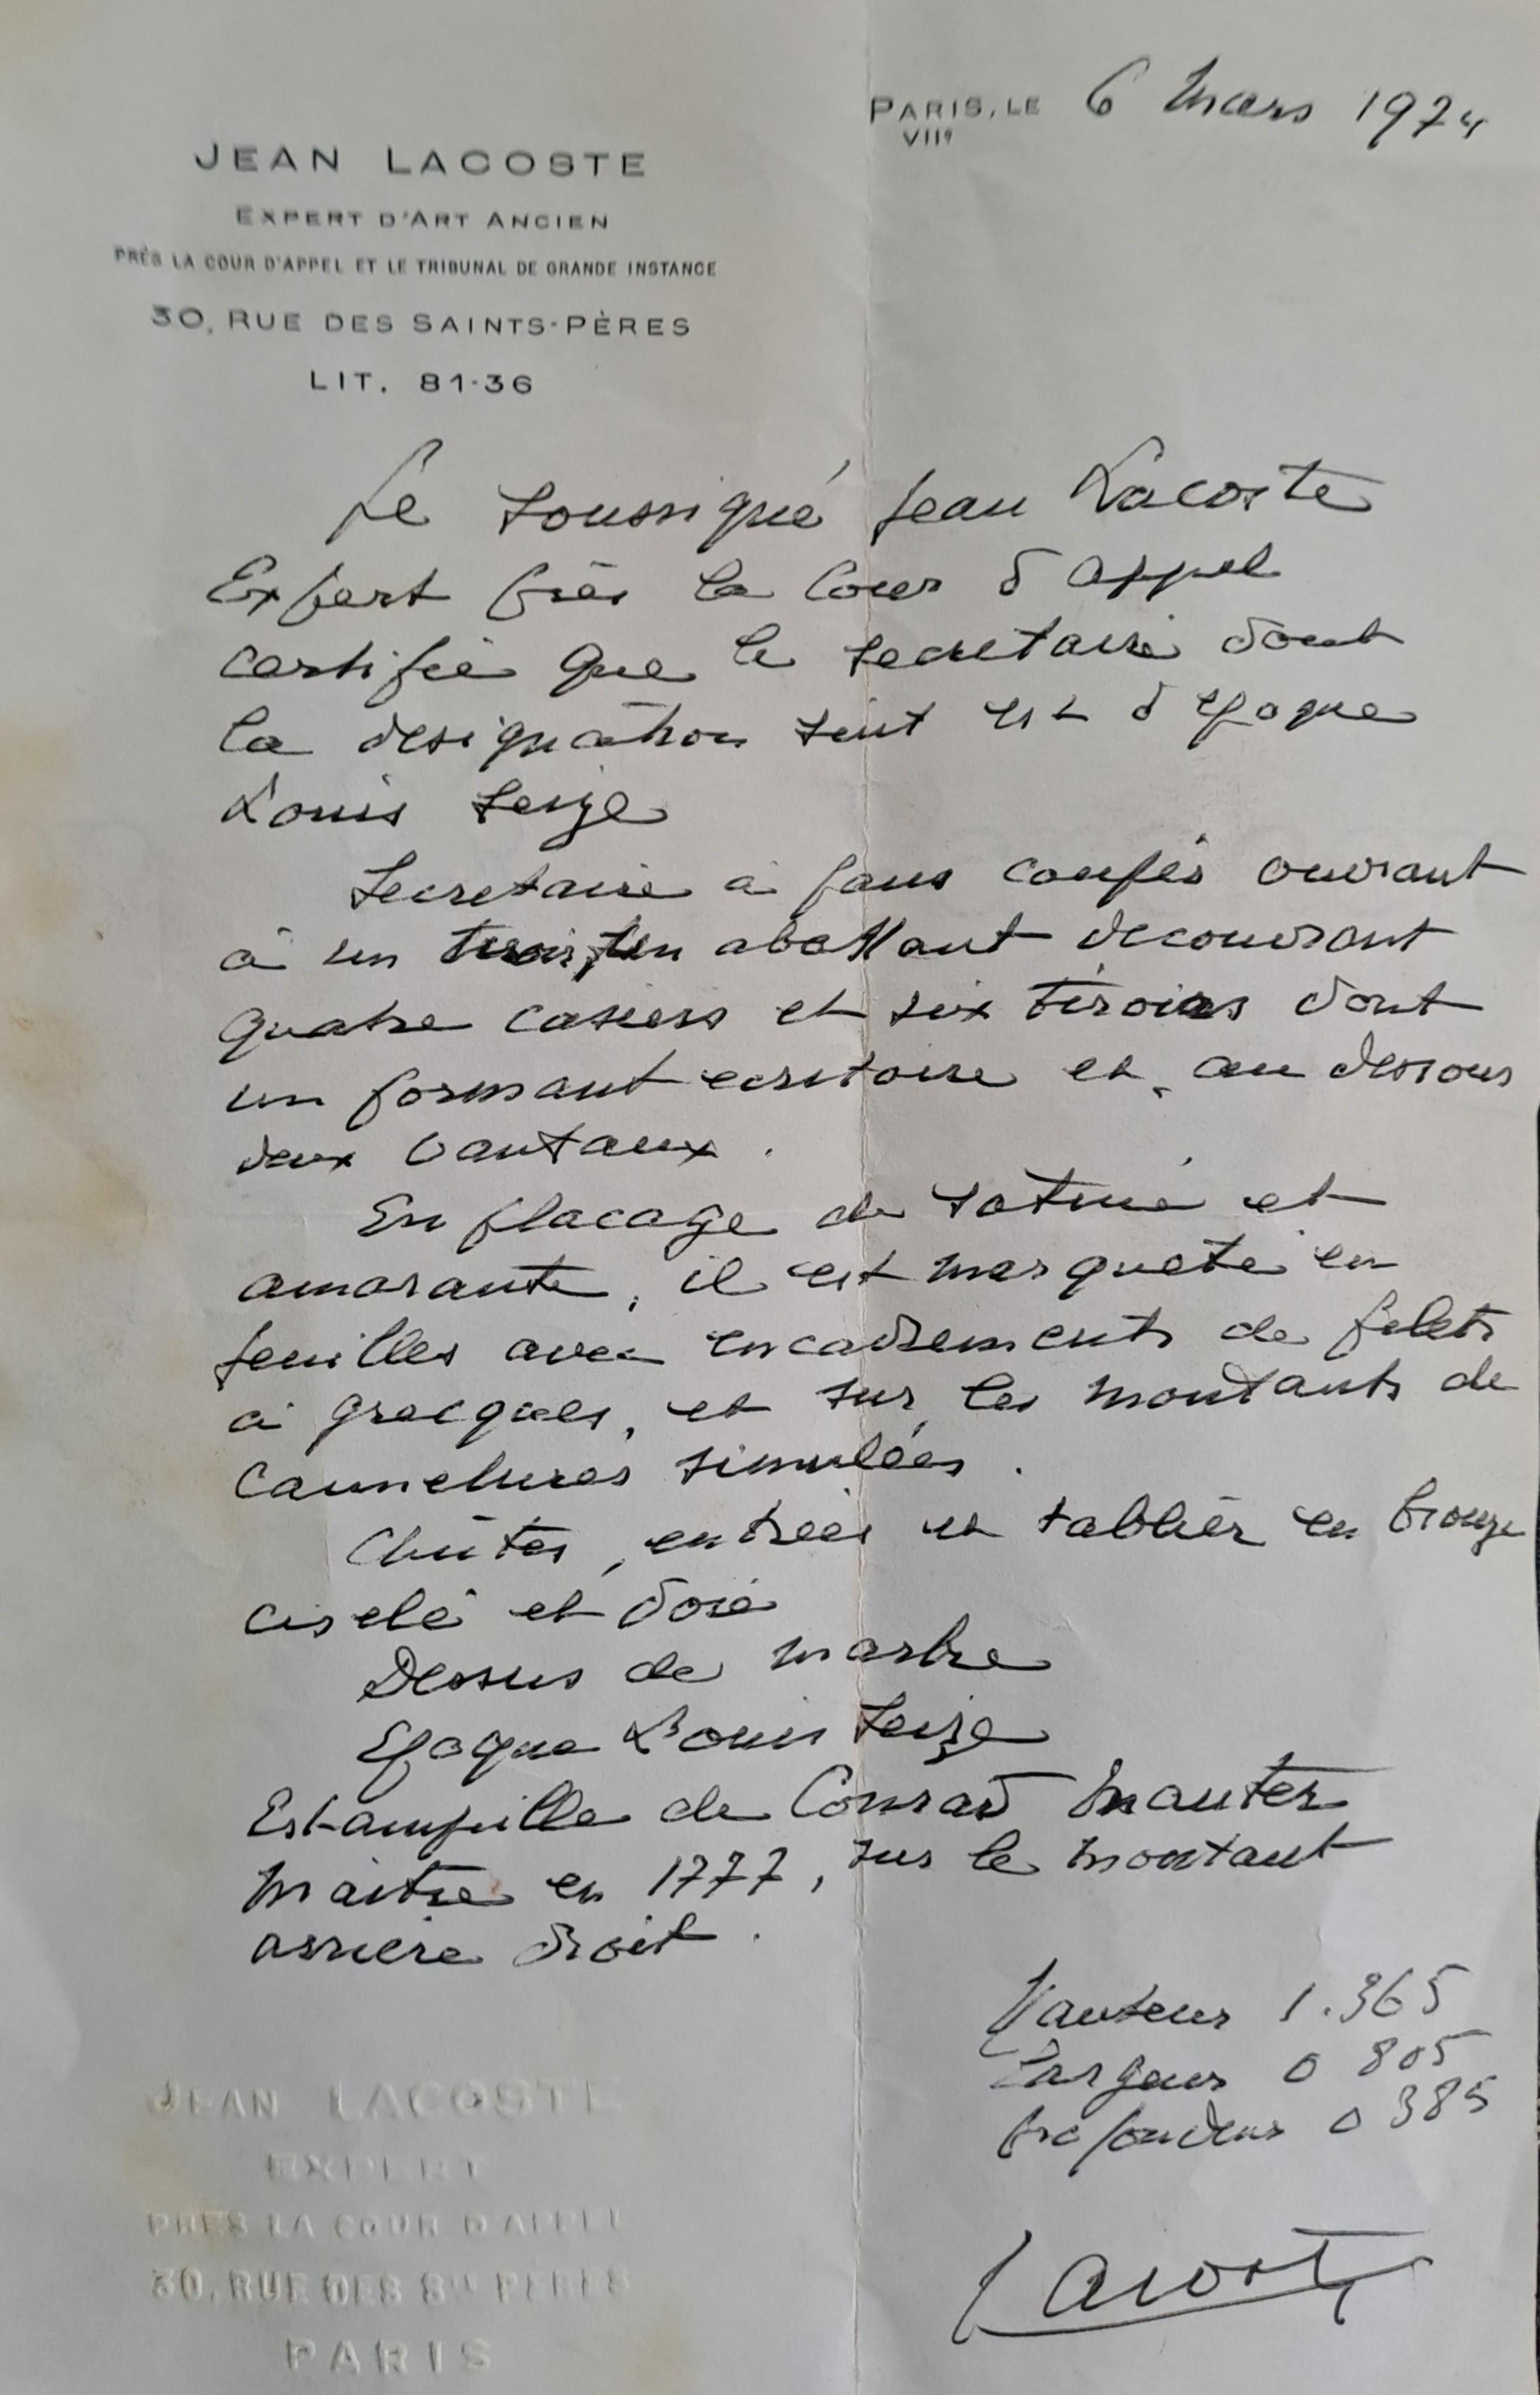 PARIS, LE 6 mars 1974
VIIe
JEAN LACOSTE
EXPERT D'ART ANCIEN
PRÈS LA COUR D'APPEL ET LE TRIBUNAL DE GRANDE INSTANCE
30, RUE DES SAINTS-PÈRES
LIT. 81-36
Je soussigné Jean Lacoste
Expert près la Cour d'appel
certifie que le secretaire dont
la designation suit est d'epoque
Louis Seize
Secretaire à pans coupés ouvrant
à un tiroir, un abattant decouvrant
quatre casiers et six tiroirs dont
un formant ecritoire et au dessous
deux vantaux.
En placage de satiné et
amarante, il est marqueté en
feuilles avec encadrements de filets
à grecques, et sur les montants de
cannelures simulées.
Chûtes, entrées et tablier en bronze
ciselé et doré
Dessus de marbre
Epoque Louis Seize
Estampille de Conrad Mauter
Maitre en 1777, sur le montant
arrière droit.
Hauteur 1.365
Largeur 0 805
Profondeur 0 385
JEAN LACOSTE
EXPERT
PRES LA COUR D'APPEL
30, RUE DES Sts PERES
PARIS
Lacoste